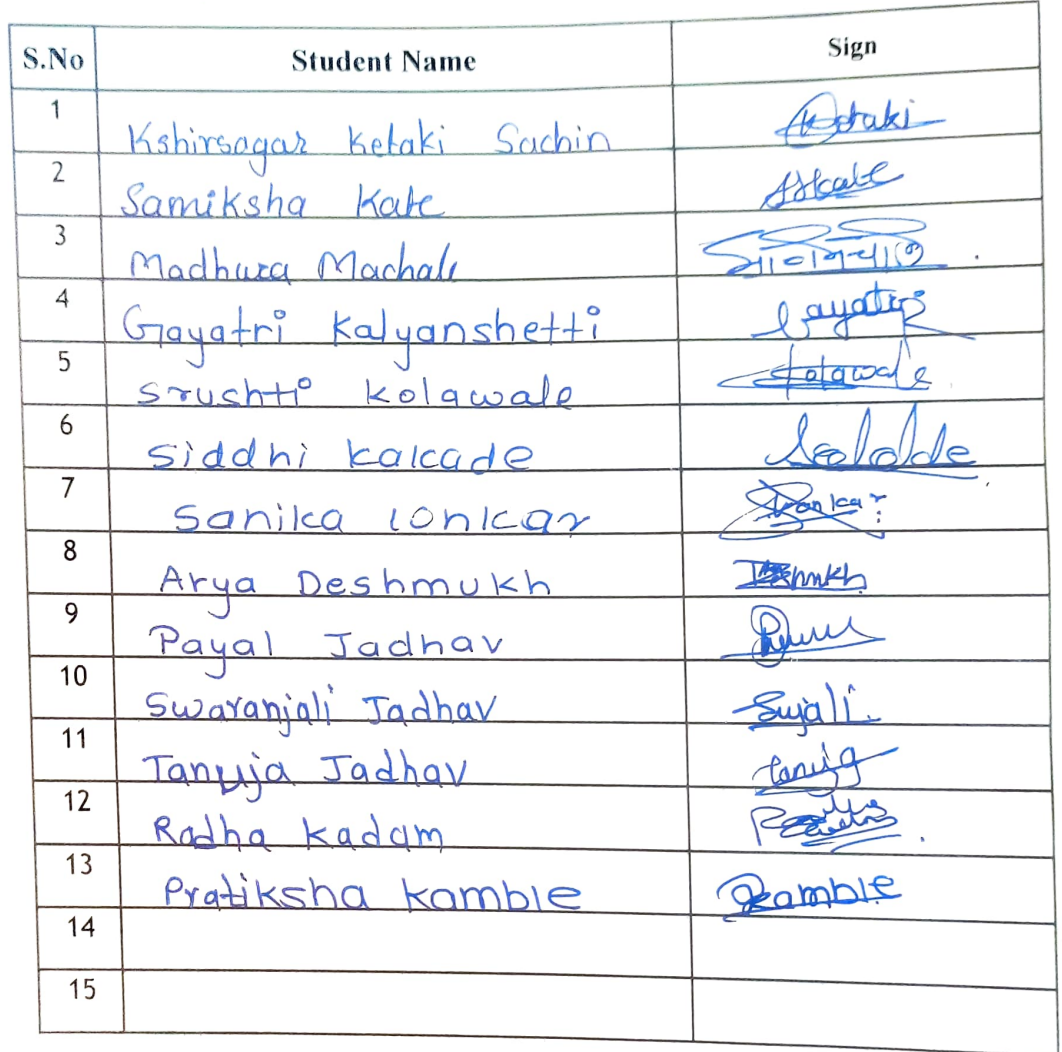 S.No Student Name Sign
1 Kshirsagar Ketaki Sachin Ketaki
2 Samiksha Kate SSKate
3 Madhura Machale
4 Gayatri Kalyanshetti Gayatri
5 Srushti Kolawale Kolawale
6 Siddhi Kalcade
7 Sanika Lonkar
8 Arya Deshmukh
9 Payal Jadhav
10 Swaranjali Jadhav Sujali
11 Tanuja Jadhav Tanuja
12 Radha Kadam
13 Pratiksha Kamble Pkamble
14
15